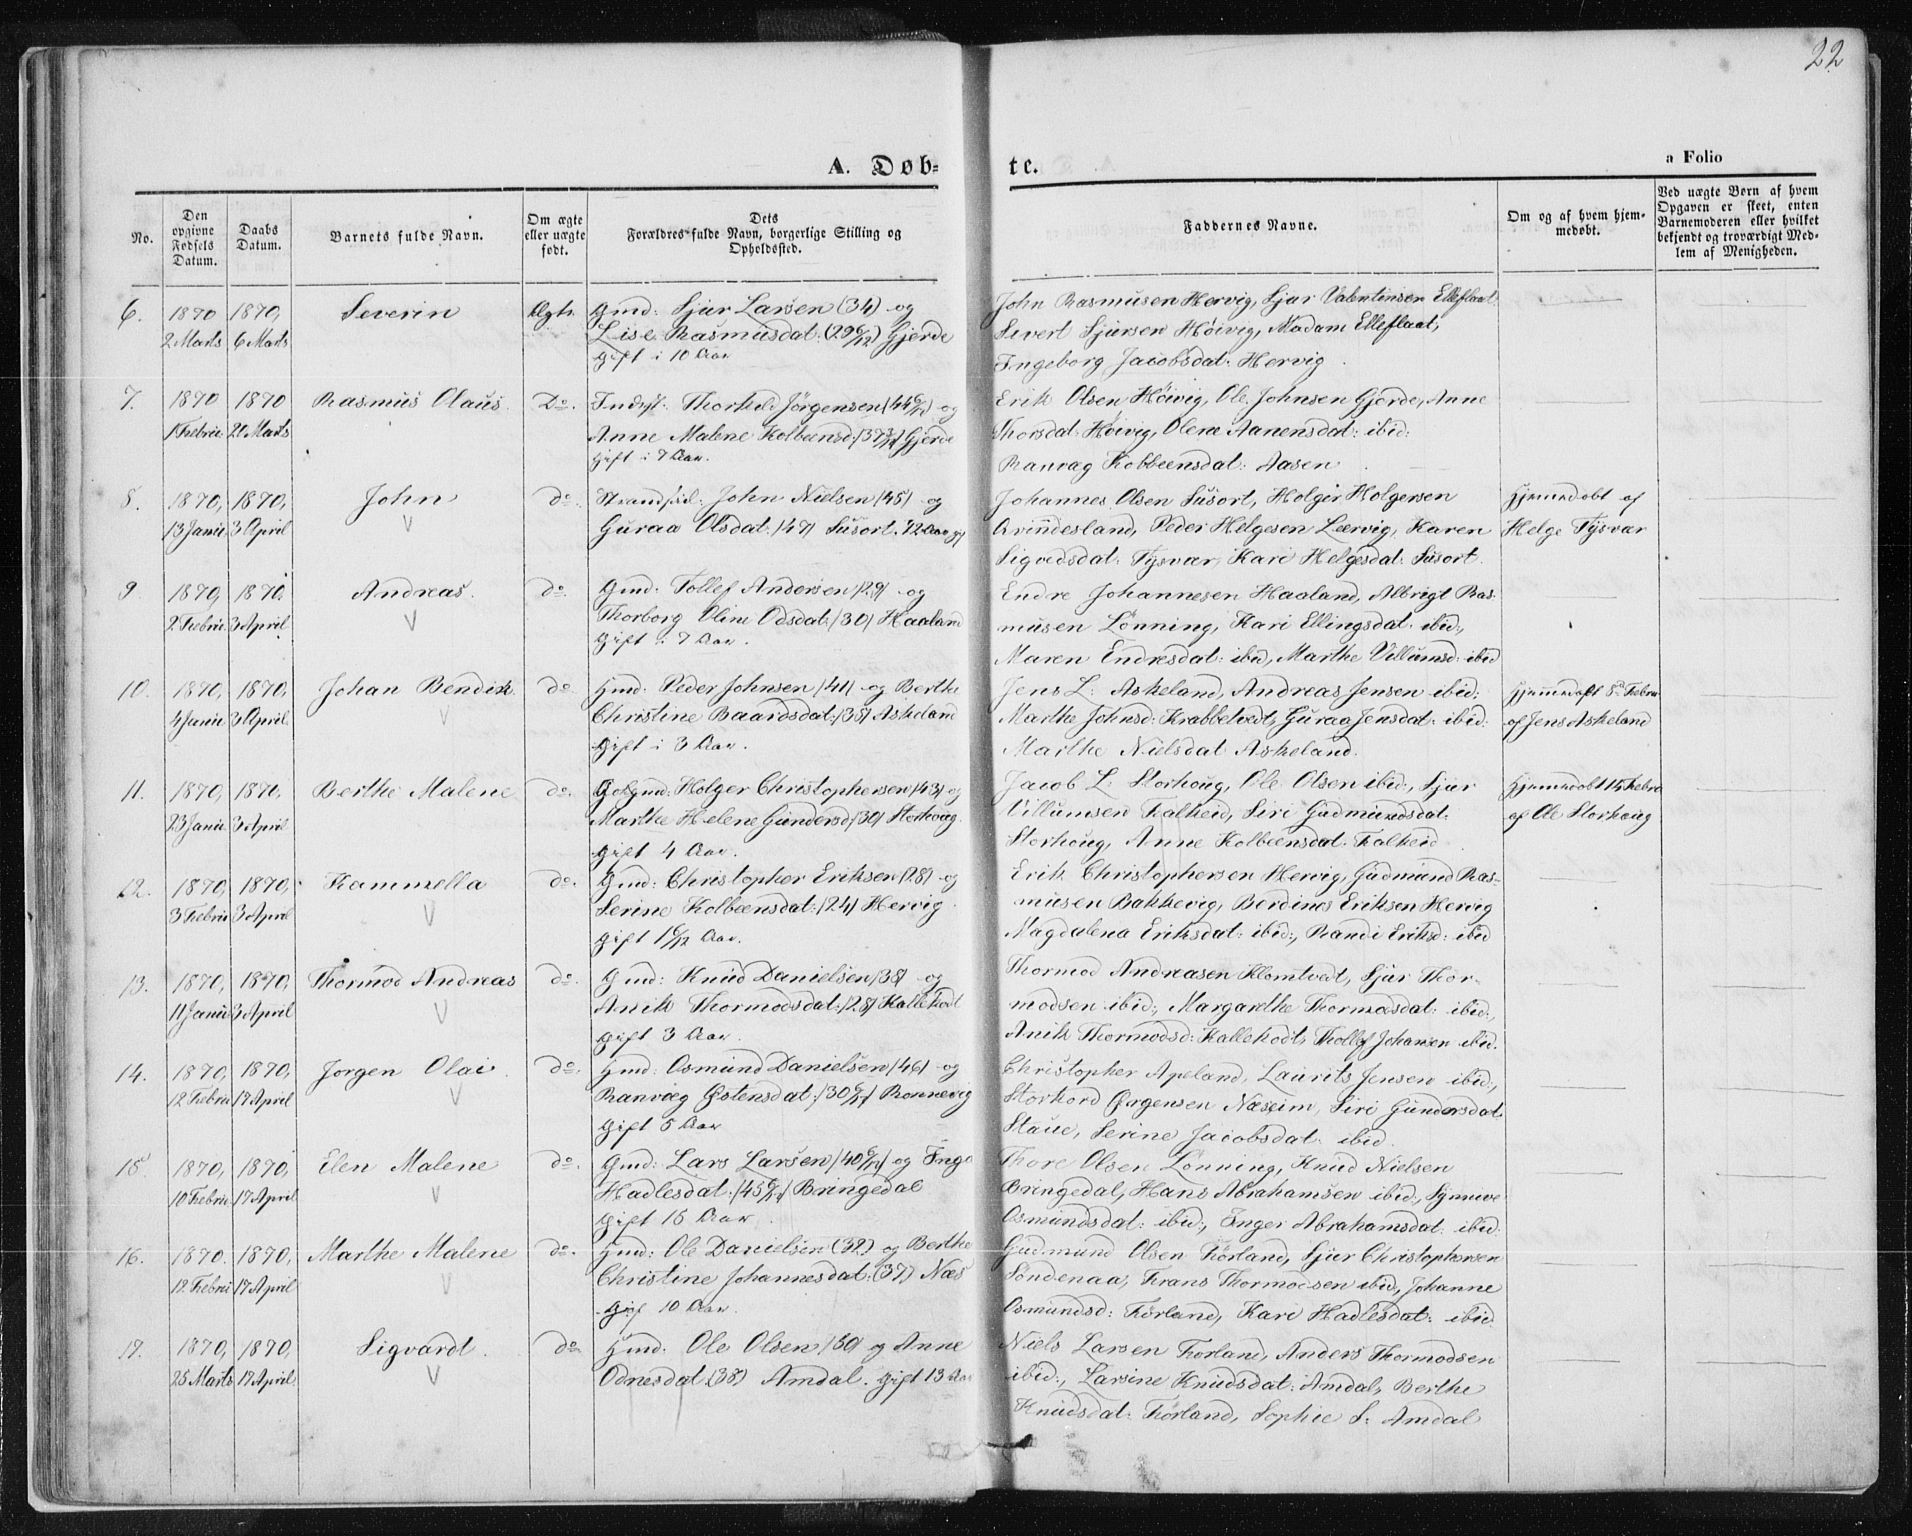 22
A. Døb-
te.
a Folio
No.
Den
opgivne
Fødsels
Datum.
Daabs
Datum.
Barnets fulde Navn.
Om ægte
eller uægte
født.
Dets
Forældres fulde Navn, borgerlige Stilling og
Opholdssted.
Faddernes Navne.
Om og af hvem hjem-
medøbt.
Ved uægte Børn af hvem
Opgaven er skeet, enten
Barnemoderen eller hvilket
bekjendt og troværdigt Med-
lem af Menigheden.
6. 1870 1870, Severin Ægte. Gmd: Sjur Larsen (34) og
2 Marts 6 Marts Lise Rasmusdat: (29 6/12) Gjerde
gift i 10 Aar
John Rasmusen Hervig, Sjur Valentinsen Elleflaat
Sivert Sjursen Høivig, Madam Elleflaat,
Ingeborg Jacobsdat. Hervig
7. 1870 1870 Rasmus Olaus Do. Inderst: Thorkel Jørgensen (44 6/12) og
1 Febru 20 Marts Anne Malene Kolbeensd (37 3/12) Gjerde
gift i 7 Aar.
Erik Olsen Høivig, Ole Johnsen Gjerde, Anne
Thorsdat Høivig, Olene Aanensdat: ibid:
Ranvag Kolbeensdat: Aasen
8. 1870, 1870, John do. Strands: John Nielsen (45) og
13 Janu. 3 April Guraa Olsdat. (47) Susort. 12 Aar g
Johannes Olsen Susort, Holger Holgersen
Qvindesland, Peder Helgesen Lervig, Karen
Sigvedsdat: Tysvær, Kari Helgesdat: Susort.
Hjemmedøbt af
Helge Tysvær
9. 1870, 1870, Andreas. do. Gmd: Tollef Andersen (29) og
2 Febru 3 April Thorborg Oline Odsdat: (30) Haaland
Gift i 7 Aar.
Endre Johannesen Haaland, Albrigt Ras-
musen Lønning, Kari Ellingsdat. ibid:,
Maren Endresdat: ibid, Marthe Villumsd: ibid
10. 1870, 1870, Johan Bendik do. Hmd: Peder Johnsen (41) og Berthe
4 Janu 3 April Christine Baardsdat: (35) Askeland
Gift i 3 Aar.
Jens L: Askeland, Andreas Jensen ibid:
Marthe Johnsd: Krabbetvedt, Guraa Jensdat: ibid:
Marthe Nielsdat Askeland.
Hjemmedøbt 8 Febru
af Jens Askeland
11. 1870, 1870, Berthe Malene do. Gmd: Holger Christophersen (43) og
23 Janu 3 April Marthe Helene Gundersd (30) Storhoug
gift 4 Aar.
Jacob L: Storhoug, Ole Olsen ibid:, Sjur
Villumsen Falkeid, Siri Gudmundsdat:
Storhoug, Anne Kolbeensdat Falkeid
Hjemmedøbt 15 Febru
af Ole Storhoug
12. 1870, 1870, Kamzella do. Gmd: Christopher Eriksen (28) og
3 Febru 3 April Serine Kolbeensdat: (24) Hervig.
gift 1 6/12 Aar.
Erik Christophersen Hervig, Gudmund Ras-
musen Bakkevig, Berdines Eriksen Hervig
Magdalena Eriksdat: ibid:, Randi Eriksd: ibid
13. 1870, 1870, Thormod Andreas do. Gmd: Knud Danielsen (38) og
11 Janu 3 April Anik Thormodsdat: (28) Kallekodt
gift 3 Aar.
Thormod Andreasen Klomtvedt, Sjur Thor-
modsen ibid:, Margarethe Thormodsdat: ibid:,
Anik Thormodsd: Kallekodt, Thollef Johansen ibid.
14. 1870, 1870, Jørgen Olai do. Hmd: Osmund Danielsen (46) og
12 Febru 17 April Ranvæg Østensdat: (30 6/12) Ronnevig
gift 5 Aar
Christopher Apeland, Laurits Jensen ibid:,
Storkord Jørgensen Næseim, Siri Gundersdat
Staue, Serine Jacobsdat. ibid.
15. 1870, 1870, Elen Malene do. Gmd: Lars Larsen (40 6/12) og Inge
10 Febru 17 April Hadlesdat: (45 6/12) Bringedal
gift 15 Aar
Thore Olsen Lønning, Knud Nielsen
Bringedal, Hans Abrahamsen ibid:, Synneve
Osmundsdat: ibid:, Inger Abrahamsdat: ibid:
16. 1870. 1870, Marthe Malene do. Hmd: Ole Danielsen (32) og Berthe
12 Febru 17 April Christine Johannesdat: (37) Næs
gif 10 Aar.
Gudmund Olsen Førland, Sjur Christophersen
Søndenaa, Frans Thormodsen ibid, Johanne
Osmundsd: Førland, Kari Hadlesdat: ibid.
17. 1870, 1870, Sigvardt. do. Hmd: Ole Olsen (50) og Anne
25 Marts 17 April Odnesdat (38) Amdal. gift 13 Aar
Niels Larsen Førland, Anders Thormodsen
ibid:, Larsine Knudsdat: Amdal, Berthe
Knudsdat: Førland, Sophie S: Amdal